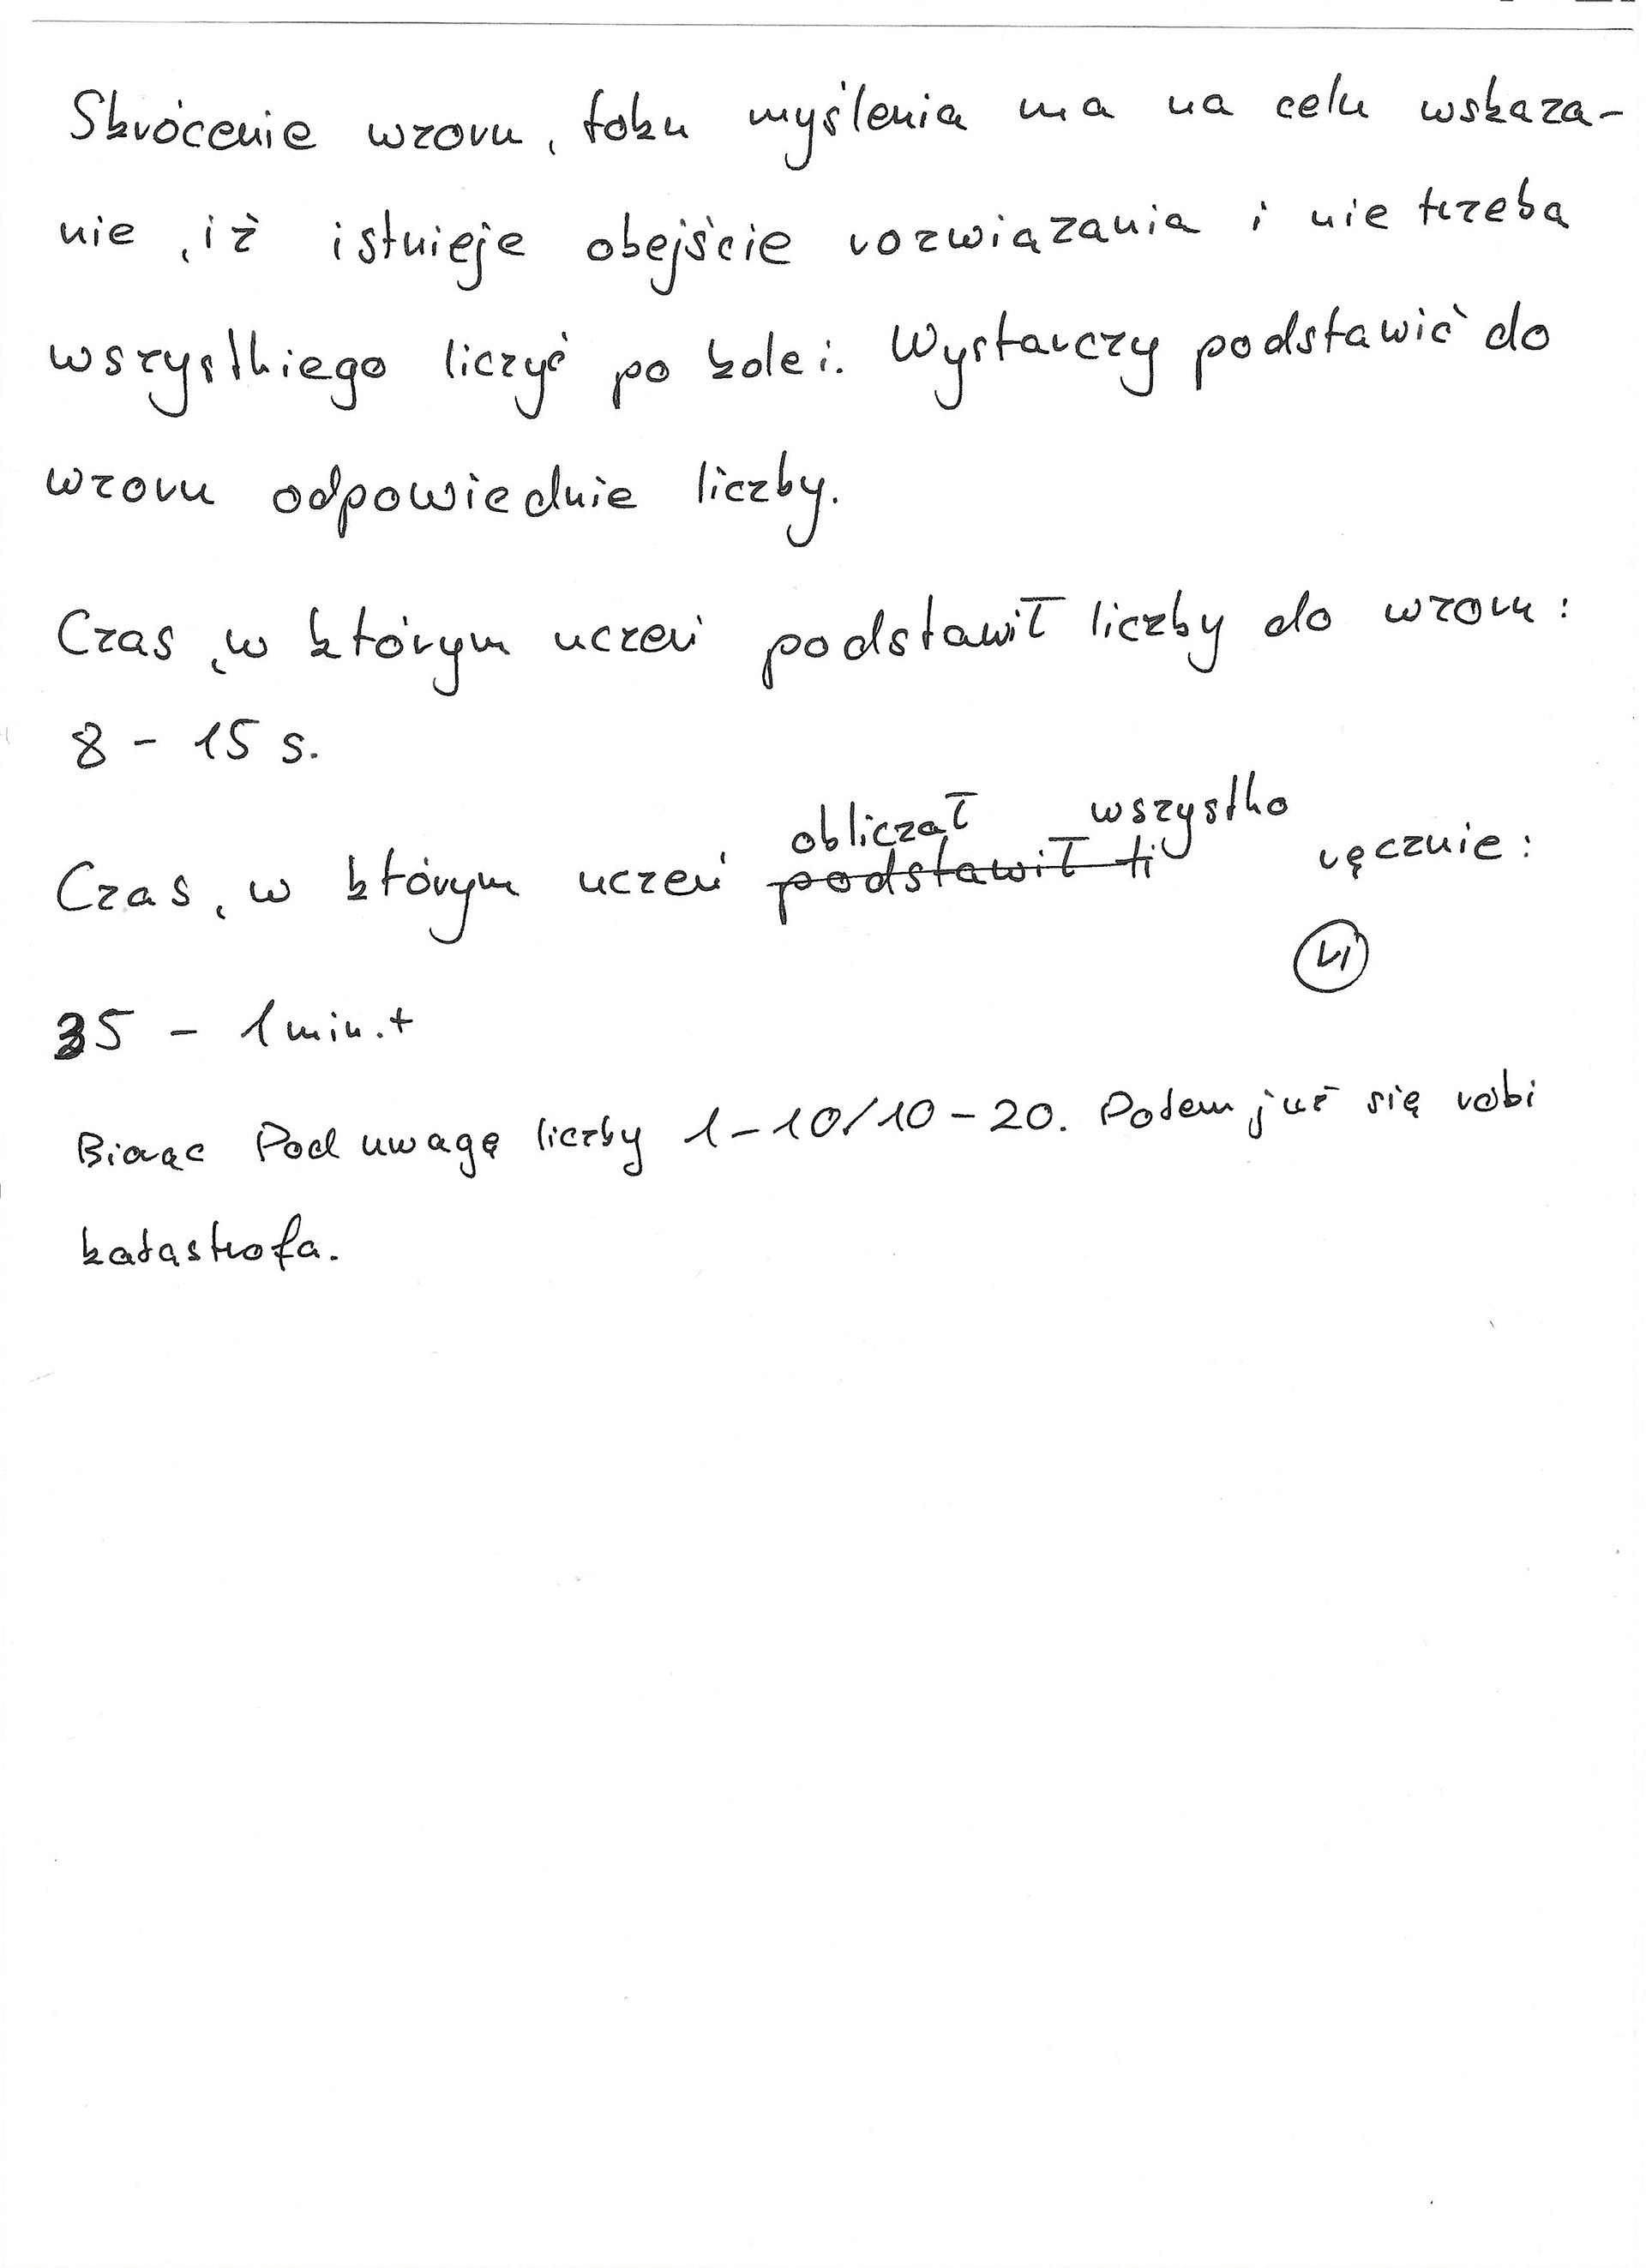 Skrócenie wzoru, toku myślenia ma na celu wskaza-
nie, iż istnieje obejście rozwiązania i nie trzeba
wszystkiego liczyć po kolei. Wystarczy podstawić do
wzoru odpowiednie liczby.
Czas, w którym uczeń podstawił liczby do wzoru:
8 - 15 s.
obliczał wszystko
Czas, w którym uczeń podstawił li ręcznie:
35 - 1 min.+
Biorąc Pod uwagę liczby 1-10/10-20. Potem już się robi
katastrofa.